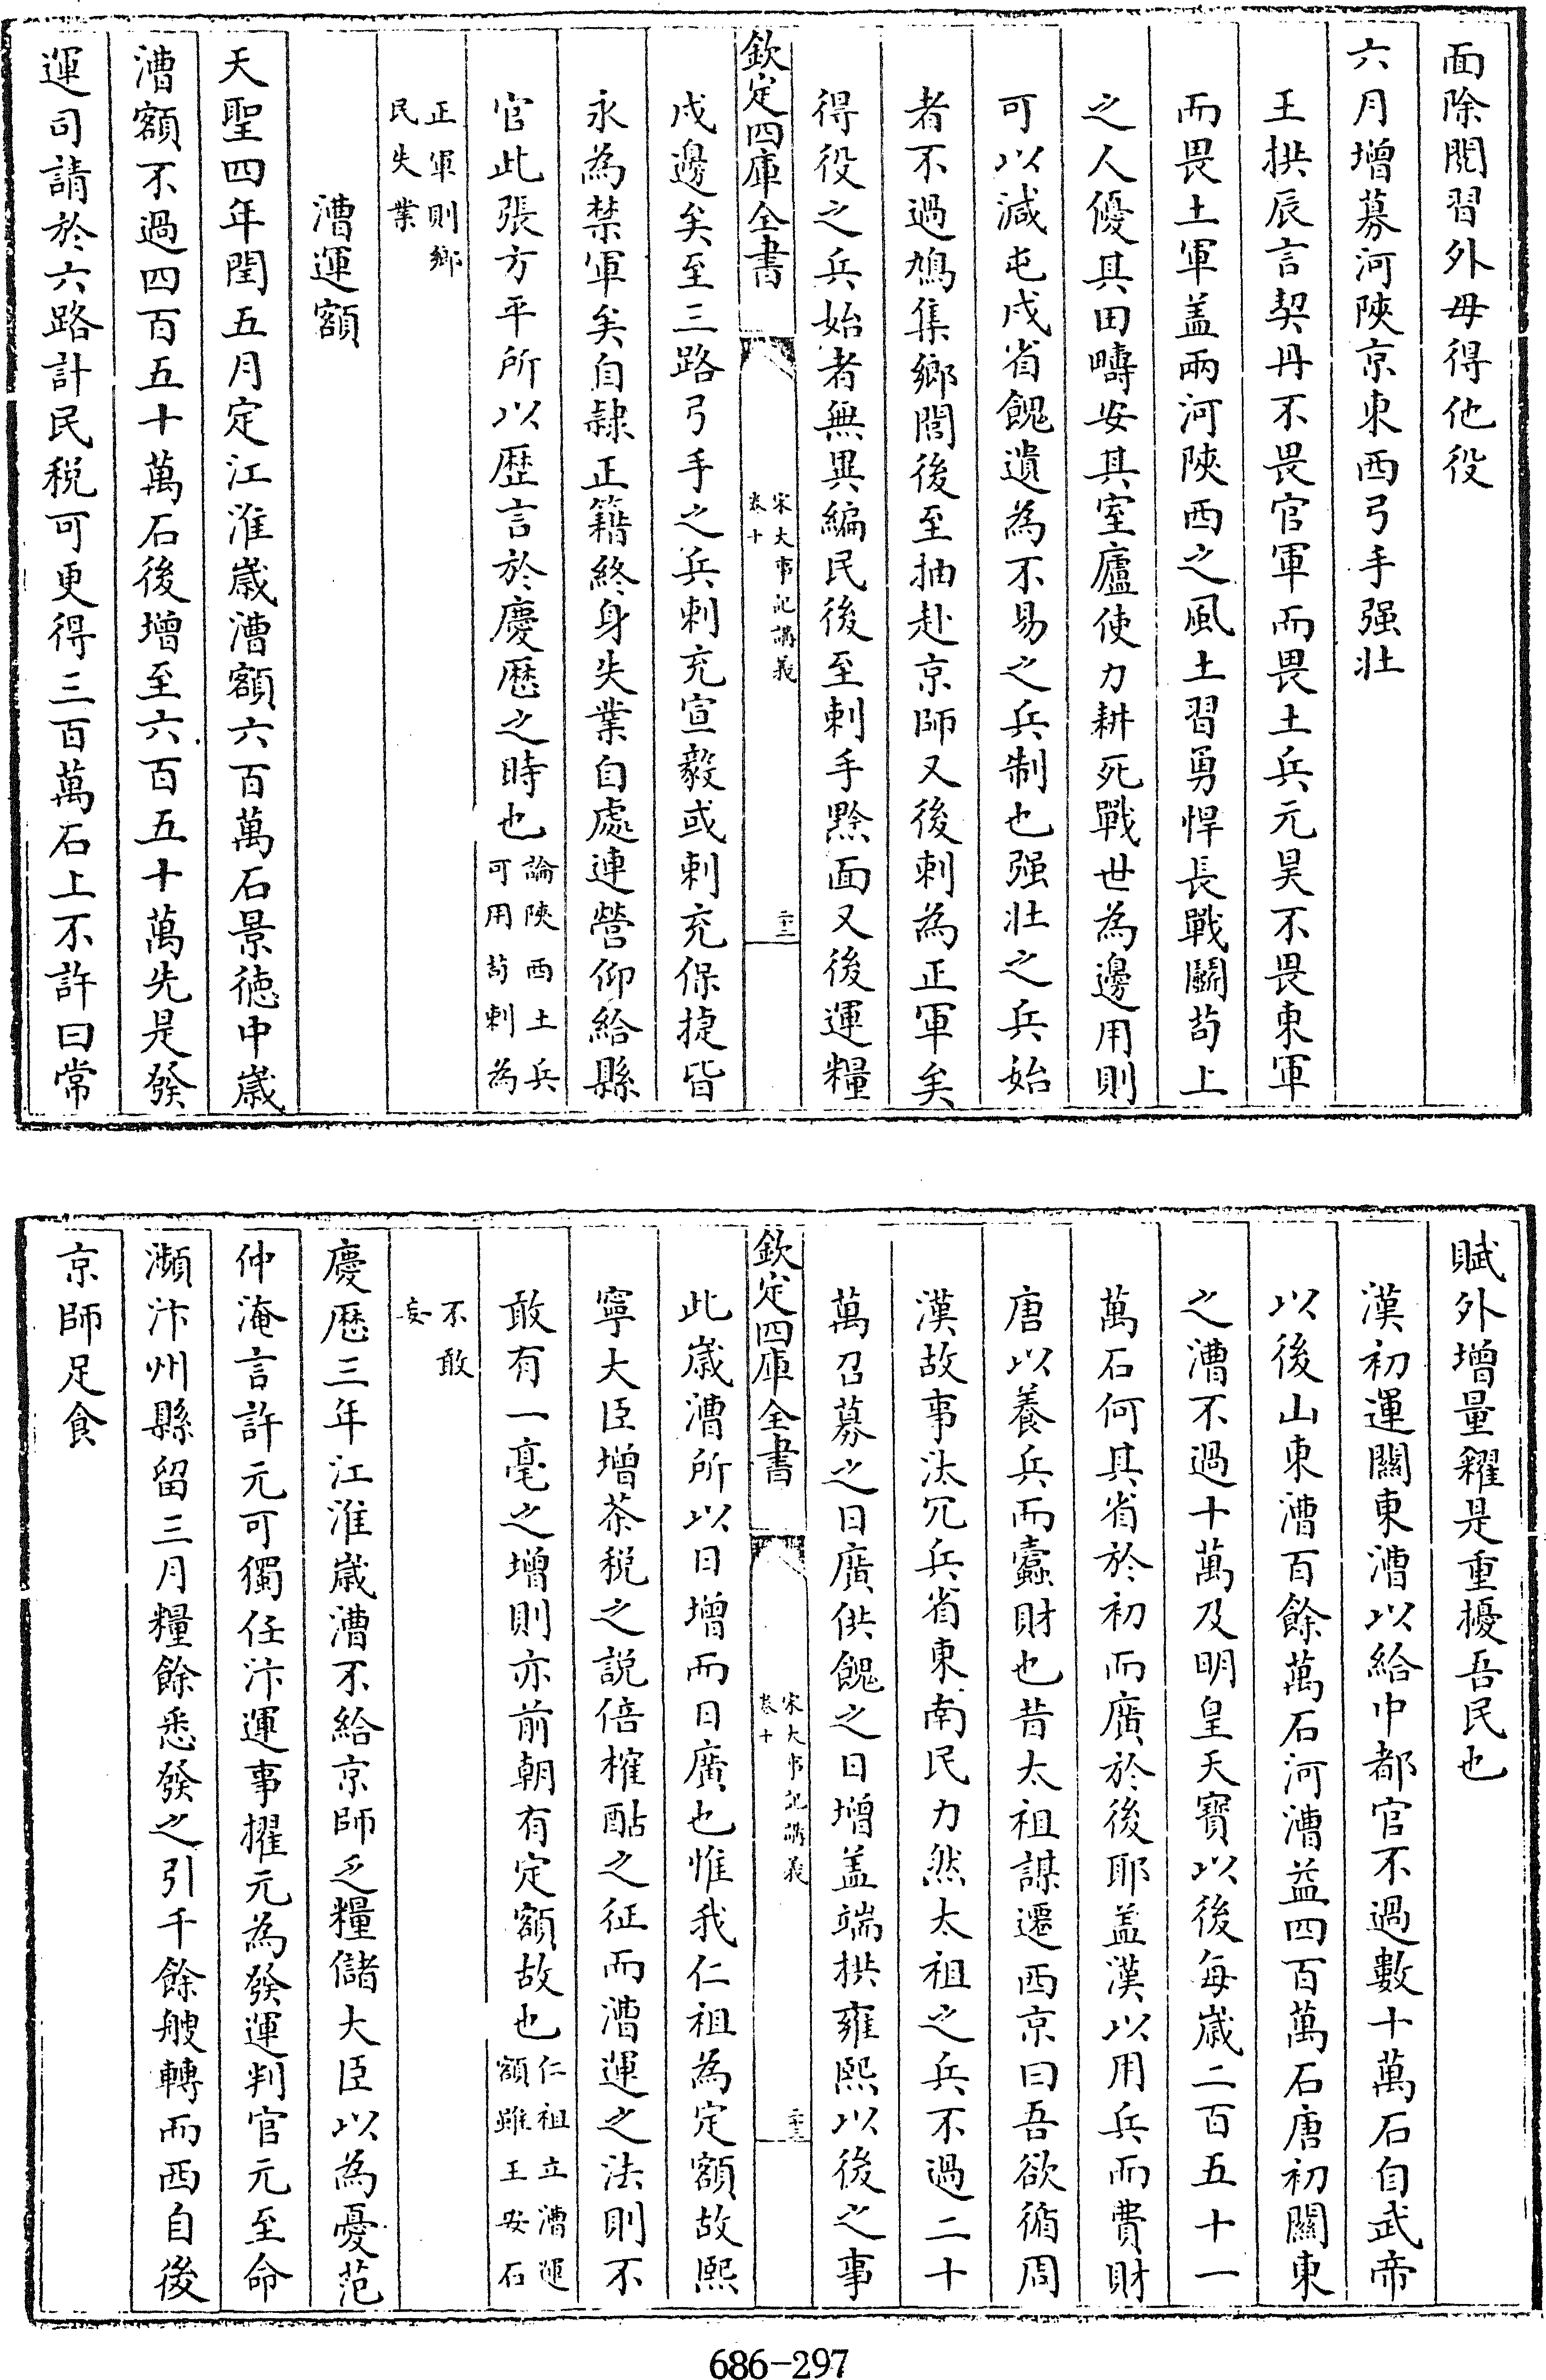 面除閱習外毋得他役
六月增募河陜京東西弓手强壯
王拱辰言契丹不畏官軍而畏土兵元昊不畏東軍
而畏土軍盖兩河陜西之風土習勇悍長戰鬭茍上
之人優其田疇安其室廬使力耕死戰世為邊用則
可以減屯戍省餽遺為不易之兵制也强壯之兵始
者不過鳩集鄉閭後至抽赴京師又後刺為正軍矣
得役之兵始者無異編民後至刺手黥面又後運糧
欽定四庫全書
宋大事記講義
卷十
二十二
戍邊矣至三路弓手之兵刺充宣毅或刺充保捷皆
永為禁軍矣自隷正籍終身失業自處連營仰給縣
官此張方平所以歴言於慶歴之時也論陜西土兵
可用茍刺為
正軍則鄉
民失業
漕運額
天聖四年閏五月定江淮歲漕額六百萬石景徳中歲
漕額不過四百五十萬石後增至六百五十萬先是發
運司請於六路計民税可更得三百萬石上不許曰常
賦外增量糴是重擾吾民也
漢初運關東漕以給中都官不過數十萬石自武帝
以後山東漕百餘萬石河漕益四百萬石唐初關東
之漕不過十萬及明皇天寳以後每歲二百五十一
萬石何其省於初而廣於後耶盖漢以用兵而費財
唐以養兵而蠧財也昔太祖謀遷西京曰吾欲循周
漢故事汰冗兵省東南民力然太祖之兵不過二十
萬召募之日廣供餽之日增盖端拱雍熙以後之事
欽定四庫全書
宋大事記講義
卷十
二十三
此歲漕所以日增而日廣也惟我仁祖為定額故熙
寧大臣增茶税之説倍榷酤之征而漕運之法則不
敢有一毫之增則亦前朝有定額故也仁祖立漕運
額雖王安石
不敢
妄
慶歴三年江淮歲漕不給京師乏糧儲大臣以為憂范
仲淹言許元可獨任汴運事擢元為發運判官元至命
瀕汴州縣留三月糧餘悉發之引千餘艘轉而西自後
京師足食
686-297